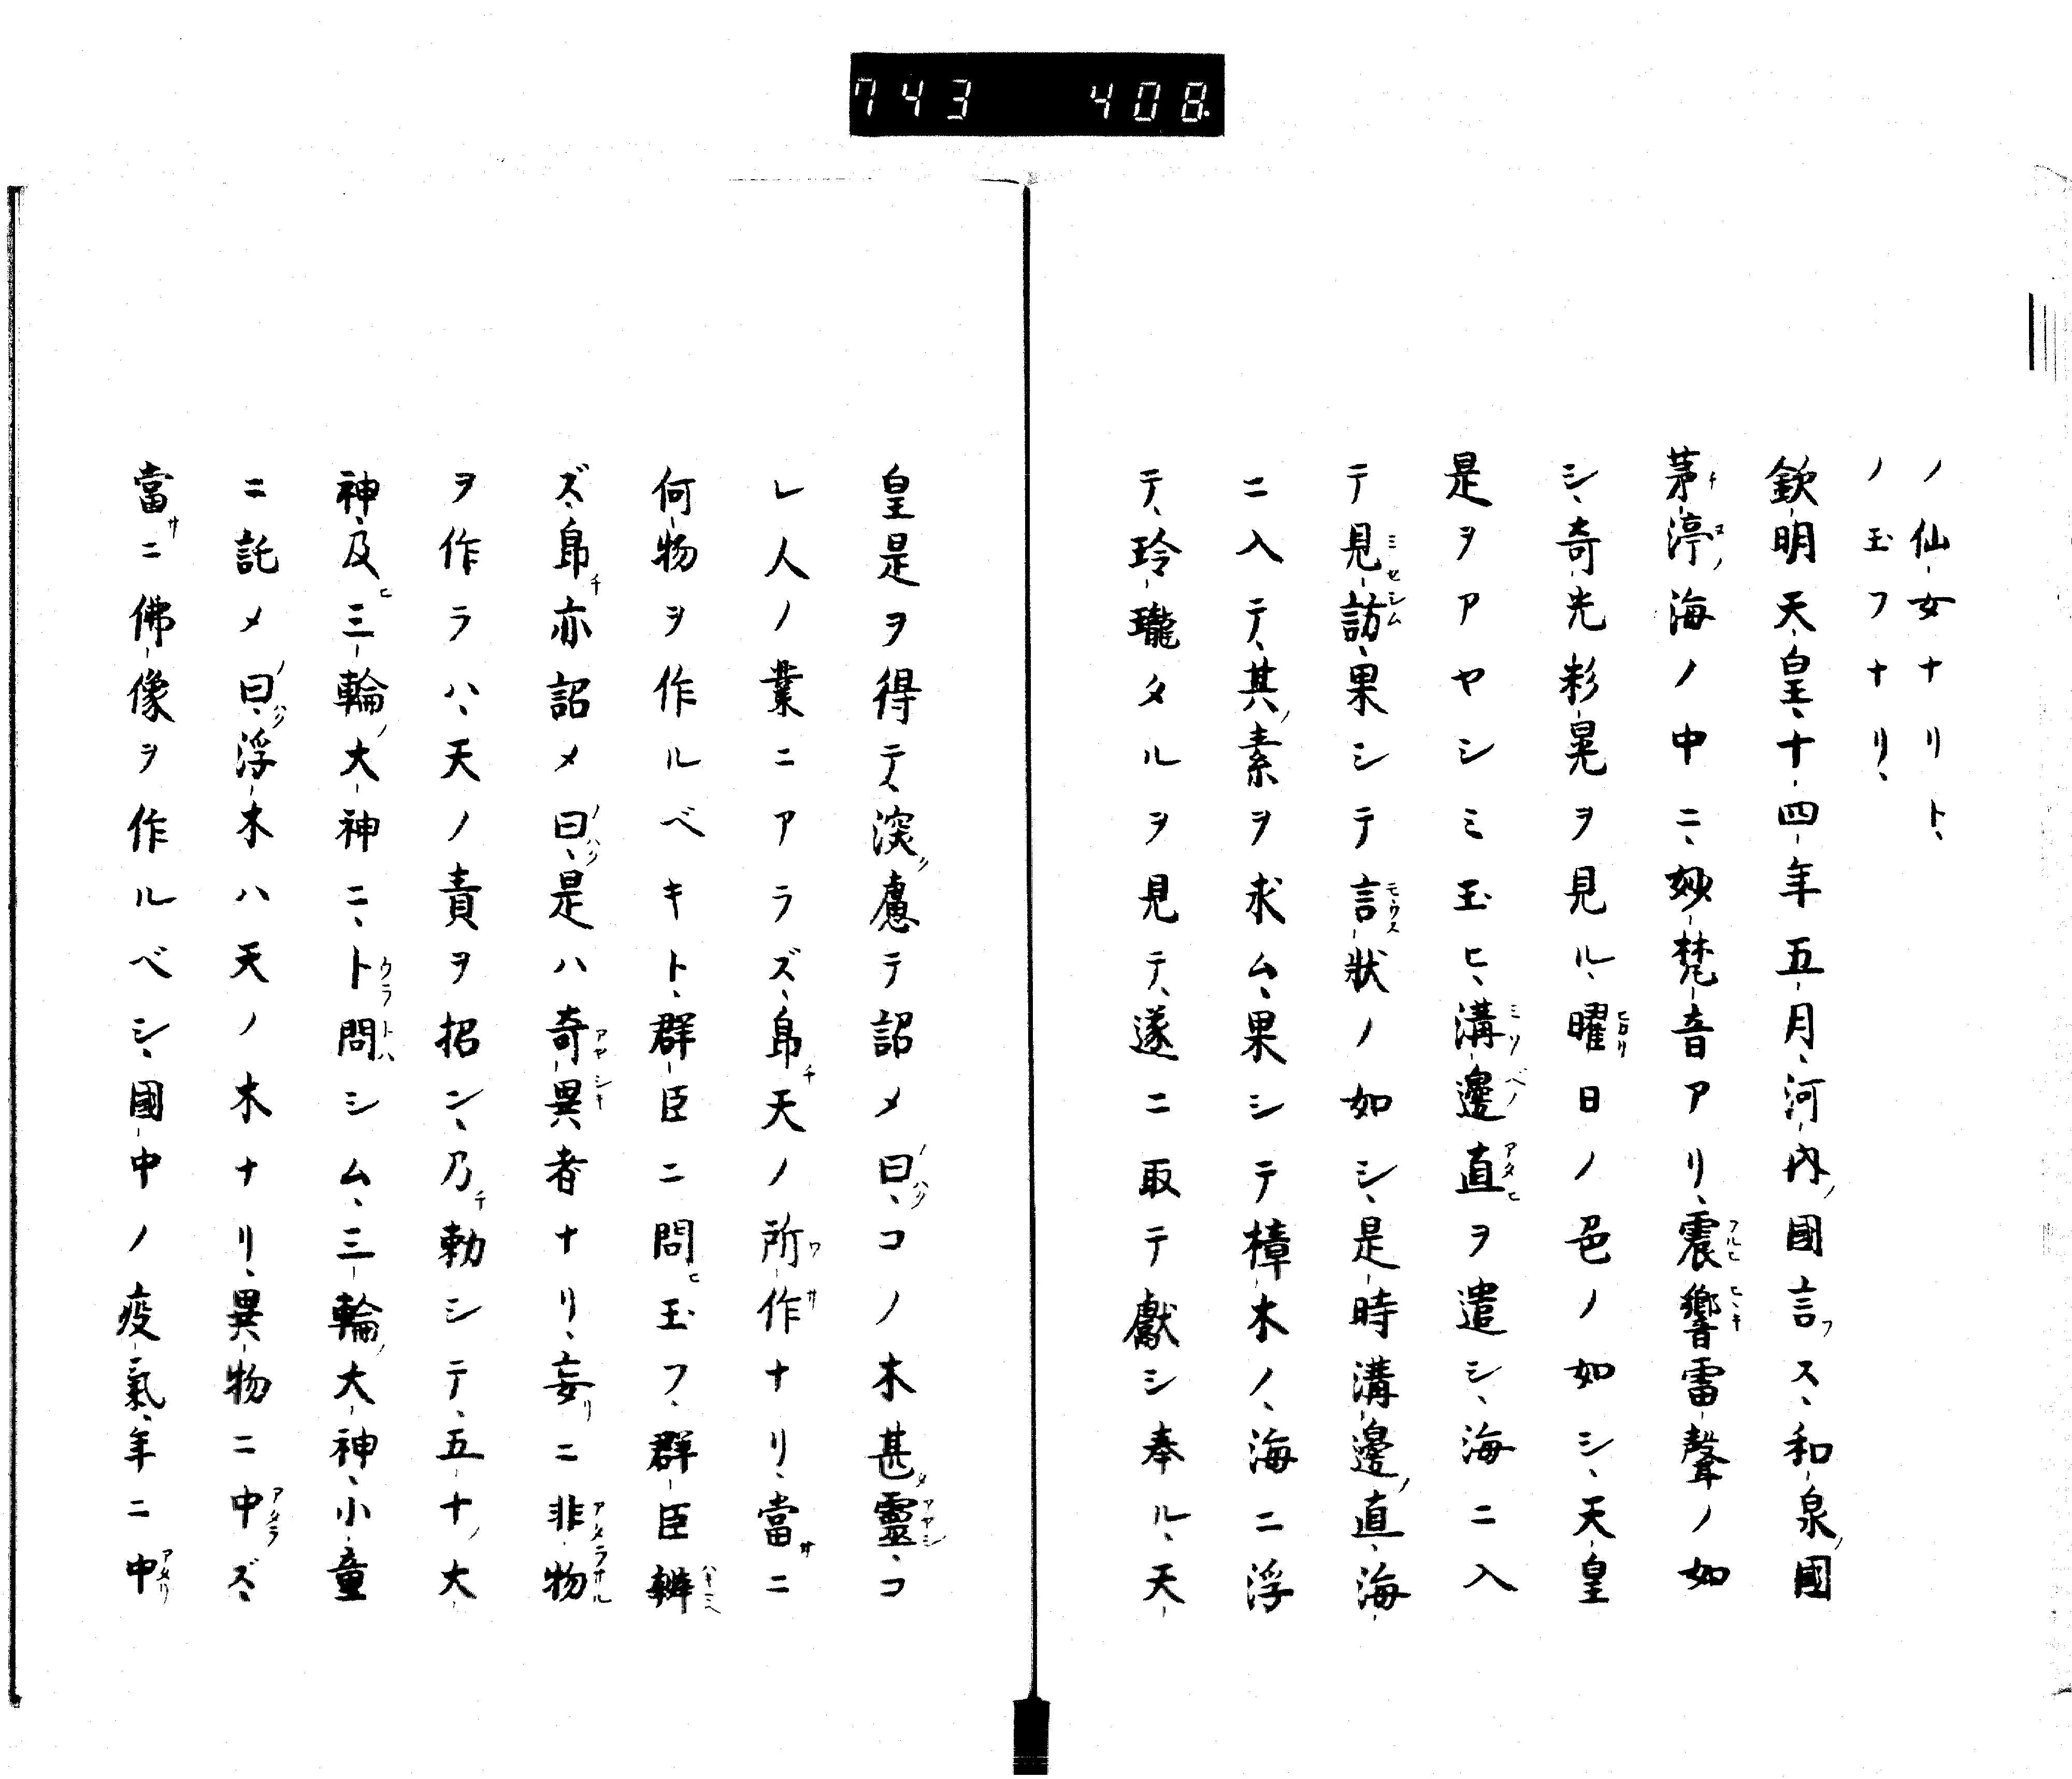 743 408.
ノ仙女ナリト、
ノ玉フナリ、
欽明天皇、十四年五月、河内ノ國言フス、和泉ノ國
茅渟ノ海ノ中ニ、妙梵音アリ、震響雷聲ノ如
シ、奇光彩晃ヲ見ル、曜日ノ色ノ如シ、天皇
是ヲアヤシミ玉ヒ、溝邊直ヲ遣シ、海ニ入
テ見訪、果シテ言狀ノ如シ、是時溝邊ノ直、海
ニ入テ、其ノ素ヲ求ム、果シテ樟木ノ、海ニ浮
テ、玲瓏タルヲ見テ、遂ニ取テ獻シ奉ル、天
皇是ヲ得テ、深ク慮テ詔メ曰、コノ木甚タ靈、コ
レ人ノ業ニアラズ、即チ天ノ所作ナリ、當サニ
何物ヲ作ルベキト、群臣ニ問ヒ玉フ、群臣辨
ズ、即チ亦詔メ曰、是ハ奇異者ナリ、妄リニ非物
ヲ作ラハ、天ノ責ヲ招ン、乃チ勅シテ、五十ノ大
神、及ヒ三輪ノ大神ニ、卜問シム、三輪ノ大神、小童
ニ託メ曰、浮木ハ天ノ木ナリ、異物ニ中ズ、
當サニ佛像ヲ作ルベシ、國中ノ疫氣、年ニ中